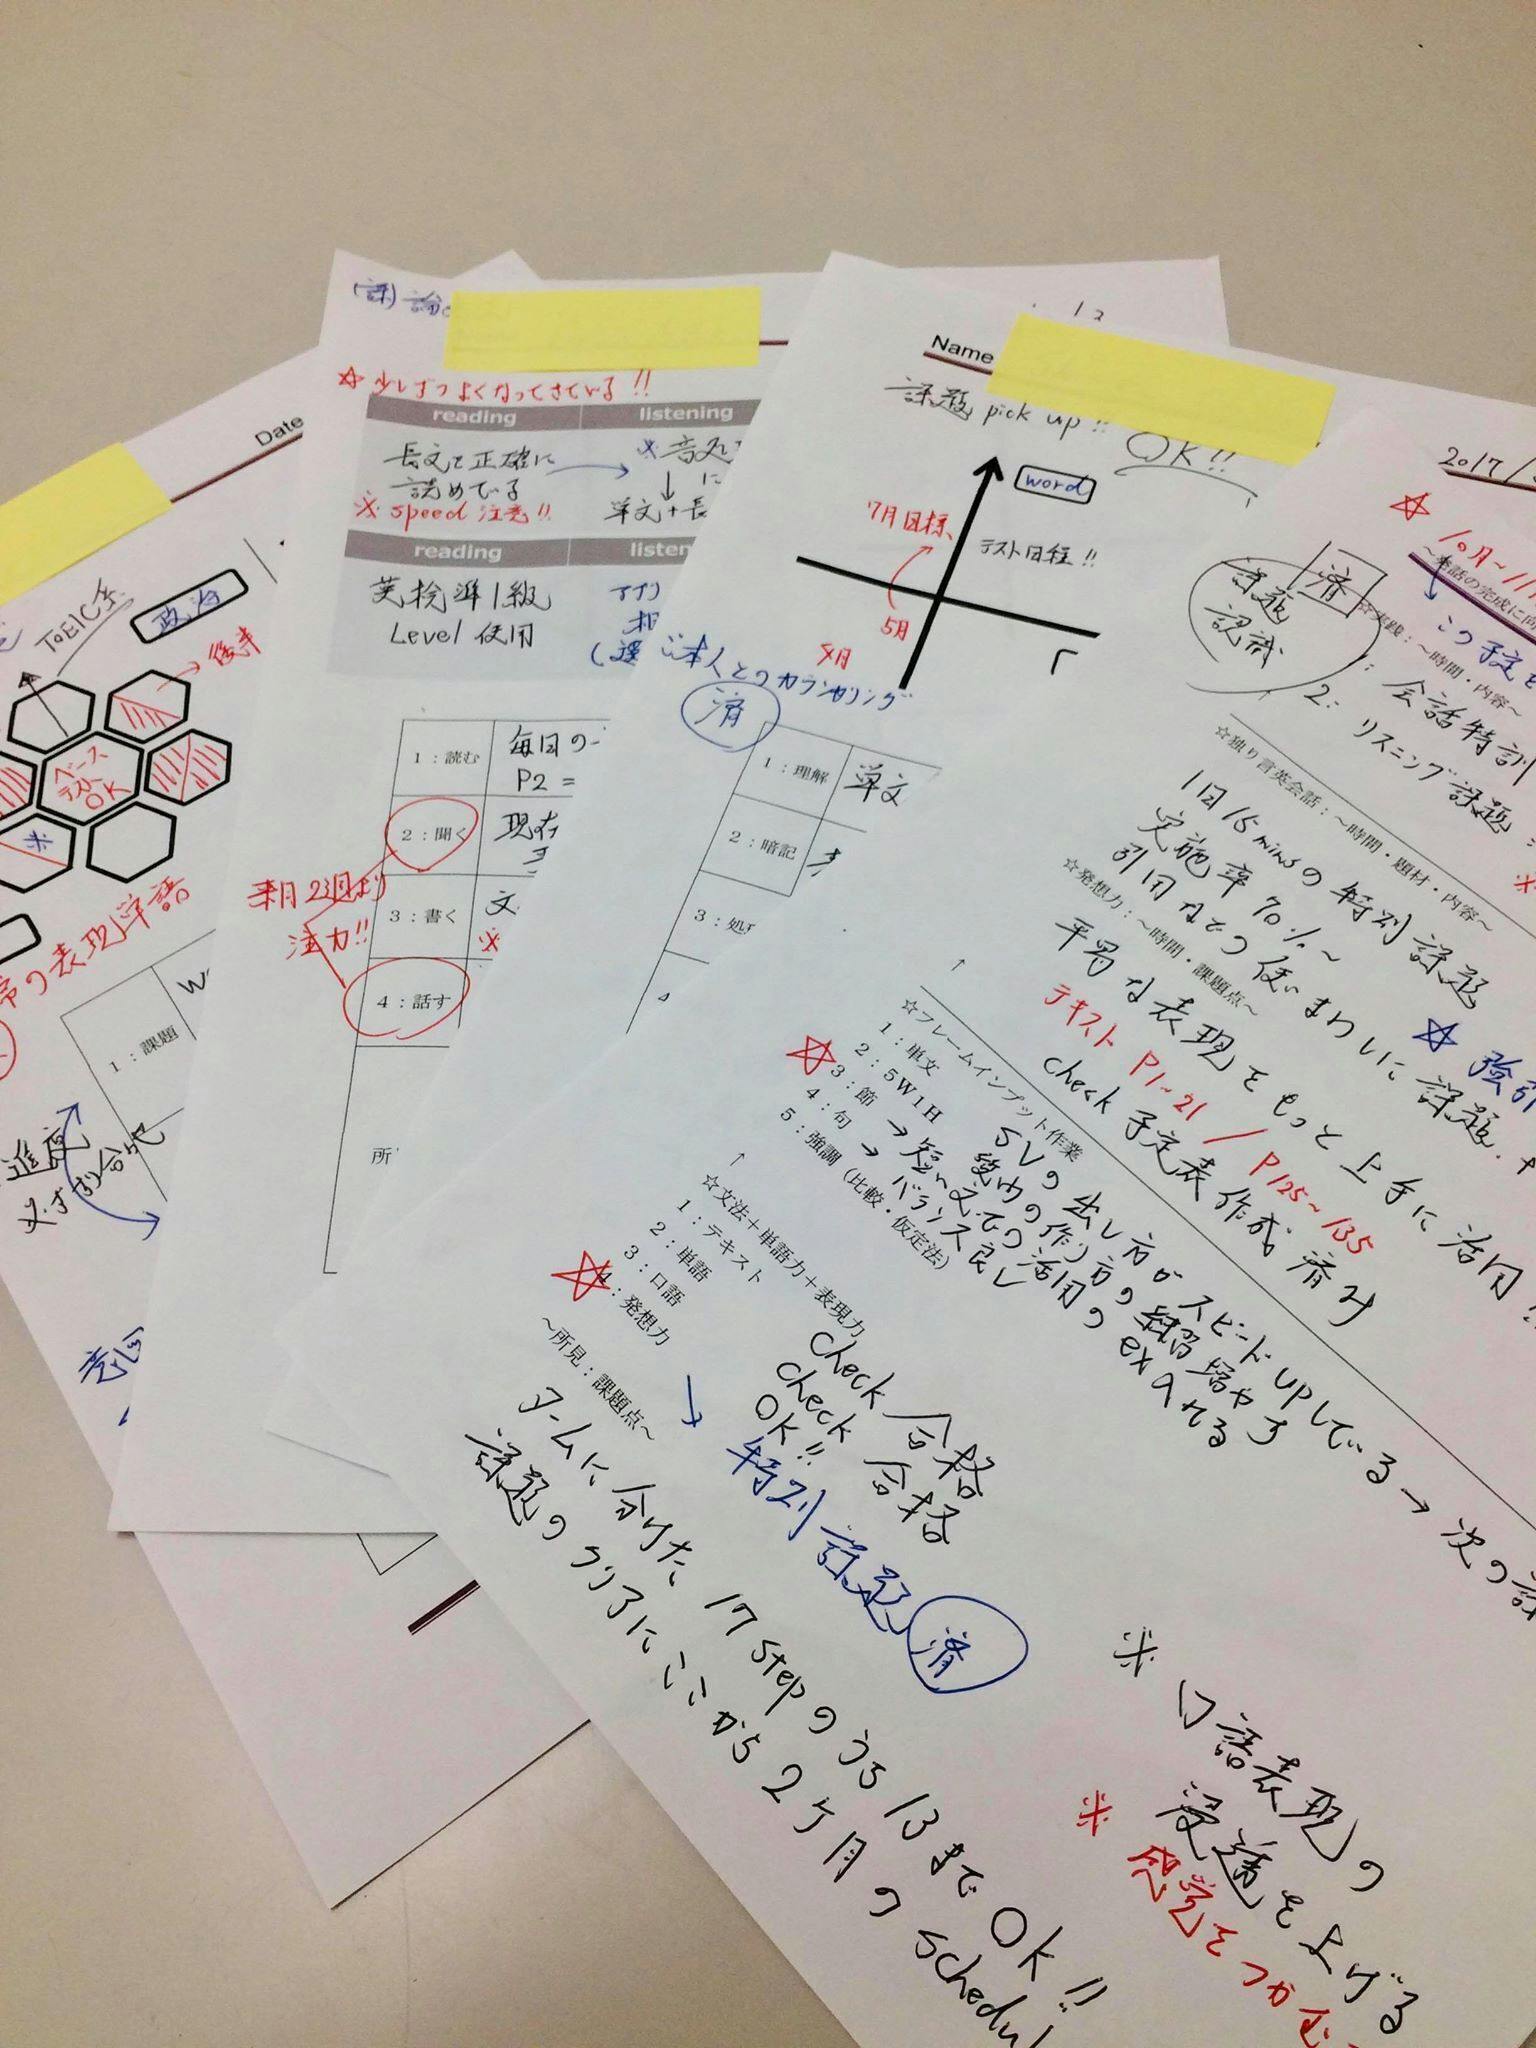 Date
TOEIC系
政治
後半
ベース
テストOK
※
の表現単語
1：課題
進度
必ず
(訳)
☆少しずつよくなってきている!!
reading
listening
長文を正確に
読めている
※speed 注意!!
単文+長
reading
listen
英検準1級
Level 使用
1：読む
毎日の
P2 =
2：聞く
現在
3：書く
文
※
4：話す
来月23日より
注力!!
所
12
Name
課題 pick up!!
OK!!
word
7月目標
テスト日程!!
5月
4月
ご本人とのカウンセリング
済
1：理解
単文
2：暗記
3：処
2017/
☆10月～11
～発話の完成に向
この予定を
課題
認識
済
☆実践：～時間・内容～
1：会話特訓
2：リスニング課題
☆独り言英会話：～時間・題材・内容～
1回15minsの特別課題
実施率70%～
引用などの使いまわしに課題
☆強引
☆発想力：～時間・課題点～
平易な表現をもっと上手に活用!!
テキスト P1～21 / P125～135
check 予定表作成済み
☆フレームインプット作業
1：単文
2：5W1H
SVの出し方がスピードupしている→次の課
☆3：節
4：句
→短い文での活用のex入れる
→バランス良し
5：強調（比較・仮定法）
☆文法＋単語力＋表現力
1：テキスト
check 合格
2：単語
check 合格
3：口語
OK!!
☆4：発想力
特別課題
済
～所見：課題点～
タームに分けた 17 stepのうち13までOK!!
課題のクリアにここから2ヶ月のschedul
※口語表現の
浸透を上げる
※感覚をつかむ